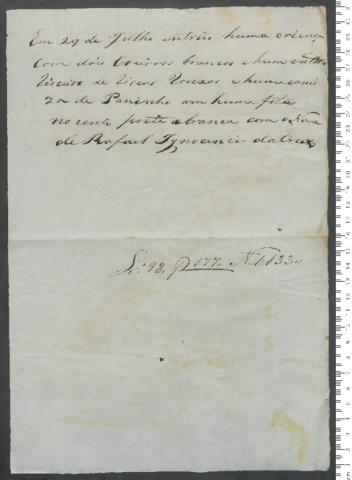 Em 29 de Julho entrou huma criença
com dois Coeiros brancos e hum vestido
riscado de riscos Roxos e huma cami
za de Paninho com huma fita
no cento preta e branca com o Nome
de Rafael Ignoancio da Cruz
L.º 98. P 177. N. 1133.